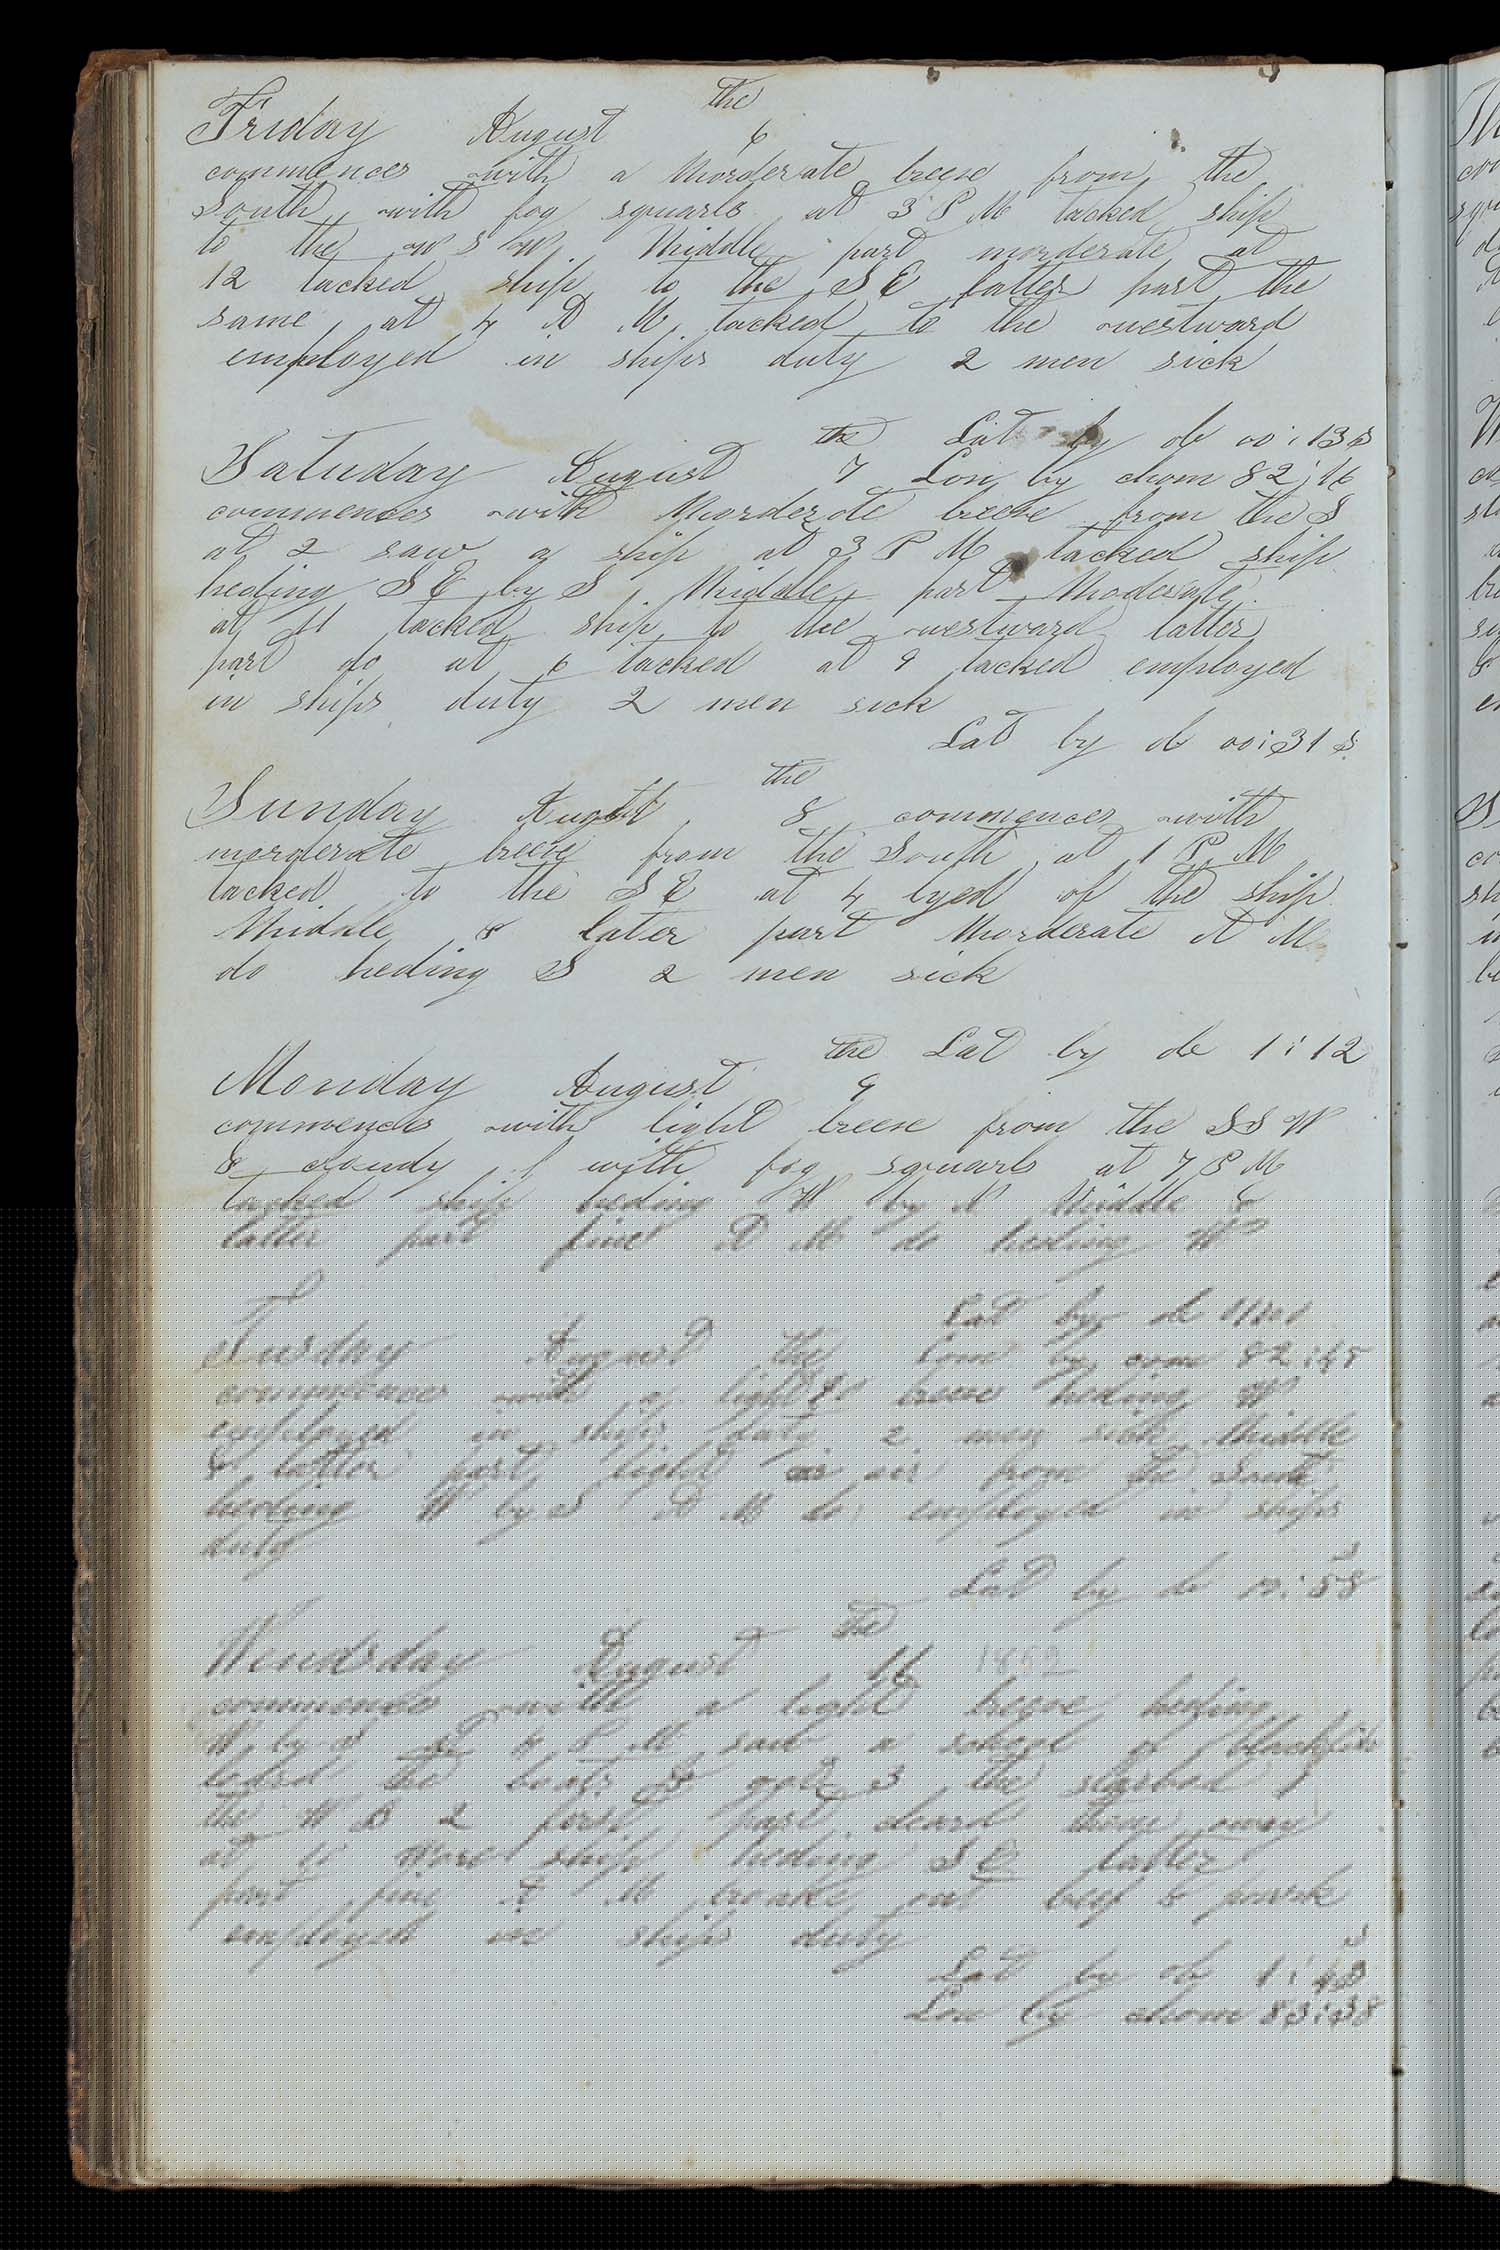 the
Friday August 6
commences with a Morderate breese from the
South with fog squarls at 3 P M tacked ship
to the W S W. Middle part morderate at
12 tacked ship to the S E latter part the
same at 4 A M tacked to the westward
employed in ships duty 2 men sick
the Lat by ob 00:13 S
Satuday August 7 Lon by chom 82:16
commences with Morderate breese from the S
at 2 saw a ship at 3 P M tacked ship
heding S E by S Middle part Moderate
at 11 tacked ship to the westward latter
part do at 6 tacked at 9 tacked employed
in ships duty 2 men sick
Lat by ob 00:31 S
the
Sunday August 8 commences with
morderate breese from the South at 1 P M
tacked to the S E at 4 lyed of the ship
Middle & later part Morderate A M
do heding S 2 men sick
the Lat by ob 1:12
Monday August 9
commences with light breese from the S S W
& cloudy with fog squarls at 7 P M
tacked ship heding W by N Middle &
latter part fine A M do heding W
Lat by ob
Tusday August the Lon by crom 82:45
commences with a light breese heding W
employed in ships duty 2 men sick Middle
& latter part light air from the South
heding W by S A M do employed in ships
duty
S
Lat by ob 58
the
Wendsday August 11 1852
commences with a light breese heding
W by S at 4 P M saw a school of blackfish
lowrd the boats & gote 3 the starbod 1
the W B 2 first part cleard them away
at 6 wore ship heding S E latter
part fine A M broake out beef & pork
employed in ships duty
S
Lat by ob 1:43
Lon by chom 83:38